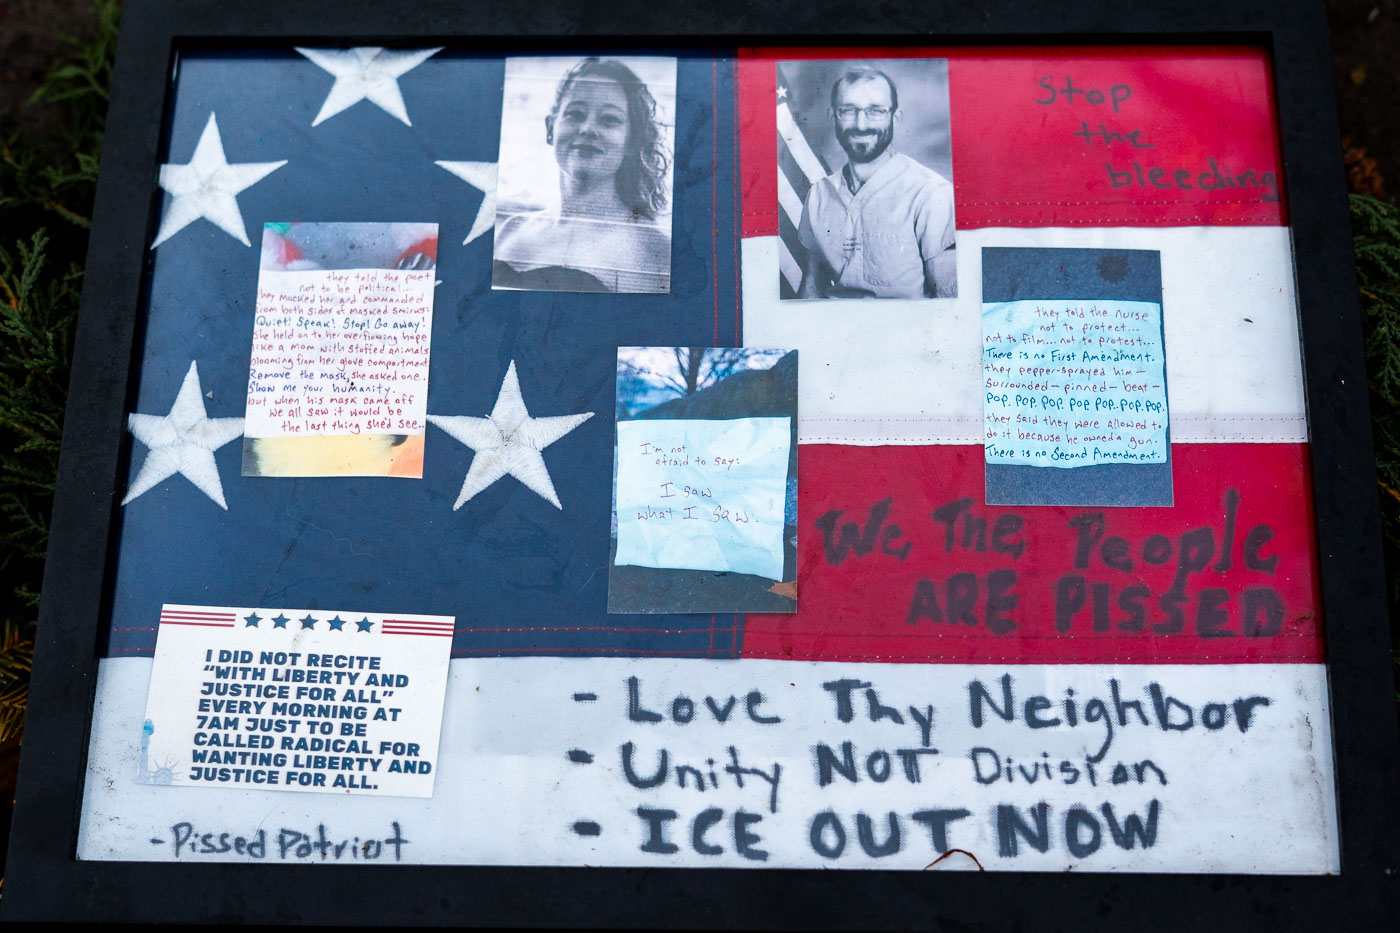 Stop
the
bleeding
they told the poet
not to be political...
they mocked her and commanded
from both sides of masked smirks:
Quiet! Speak! Stop! Go away!
She held on to her overflowing hope
like a mom with stuffed animals
blooming from her glove compartment
Remove the mask, she asked one..
Show me your humanity.
but when his mask came off
we all saw it would be
the last thing she'd see...
they told the nurse
not to protect...
not to film... not to protest...
There is no First Amendment.
they pepper-sprayed him—
surrounded—pinned—beat—
POP. POP. POP. POP. POP.. POP. POP.
they said they were allowed to
do it because he owned a gun.
There is no Second Amendment.
I'm not
afraid to say:
I saw
what I saw.
We The People
ARE PISSED
I DID NOT RECITE
"WITH LIBERTY AND
JUSTICE FOR ALL"
EVERY MORNING AT
7AM JUST TO BE
CALLED RADICAL FOR
WANTING LIBERTY AND
JUSTICE FOR ALL.
- Love Thy Neighbor
- Unity NOT Division
- ICE OUT NOW
- Pissed Patriot